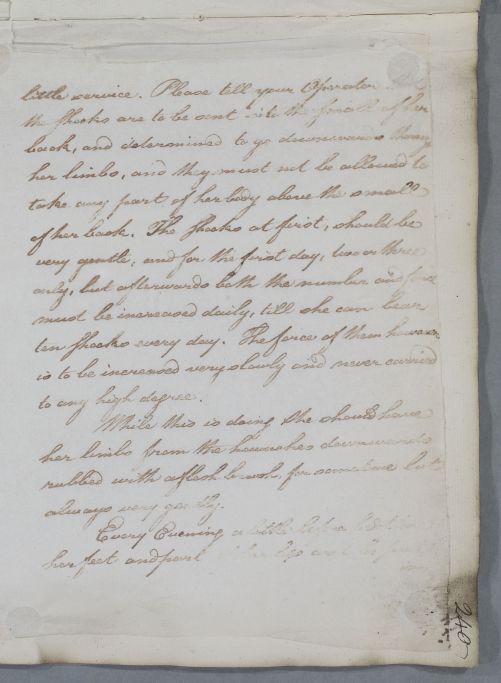 little service. Please tell your Operator
the Shocks are to be sent into the small of her
back, and determined to go downwards thro
her limbs, and they must not be allowed to
take any part of her body above the small
of her back. The Shocks at first, should be
very gentle, and for the first day, two or three
only, but afterwards both the number and force
must be increased daily, till she can bear
ten Shocks every day. The force of them however
is to be increased very slowly and never carried
to any high degree.
While this is doing she should have
her limbs from the haunches downwards
rubbed with a flesh brush, for some time but
always very gently.
Every Evening a little before bed time
her feet and part of her legs are to be
240